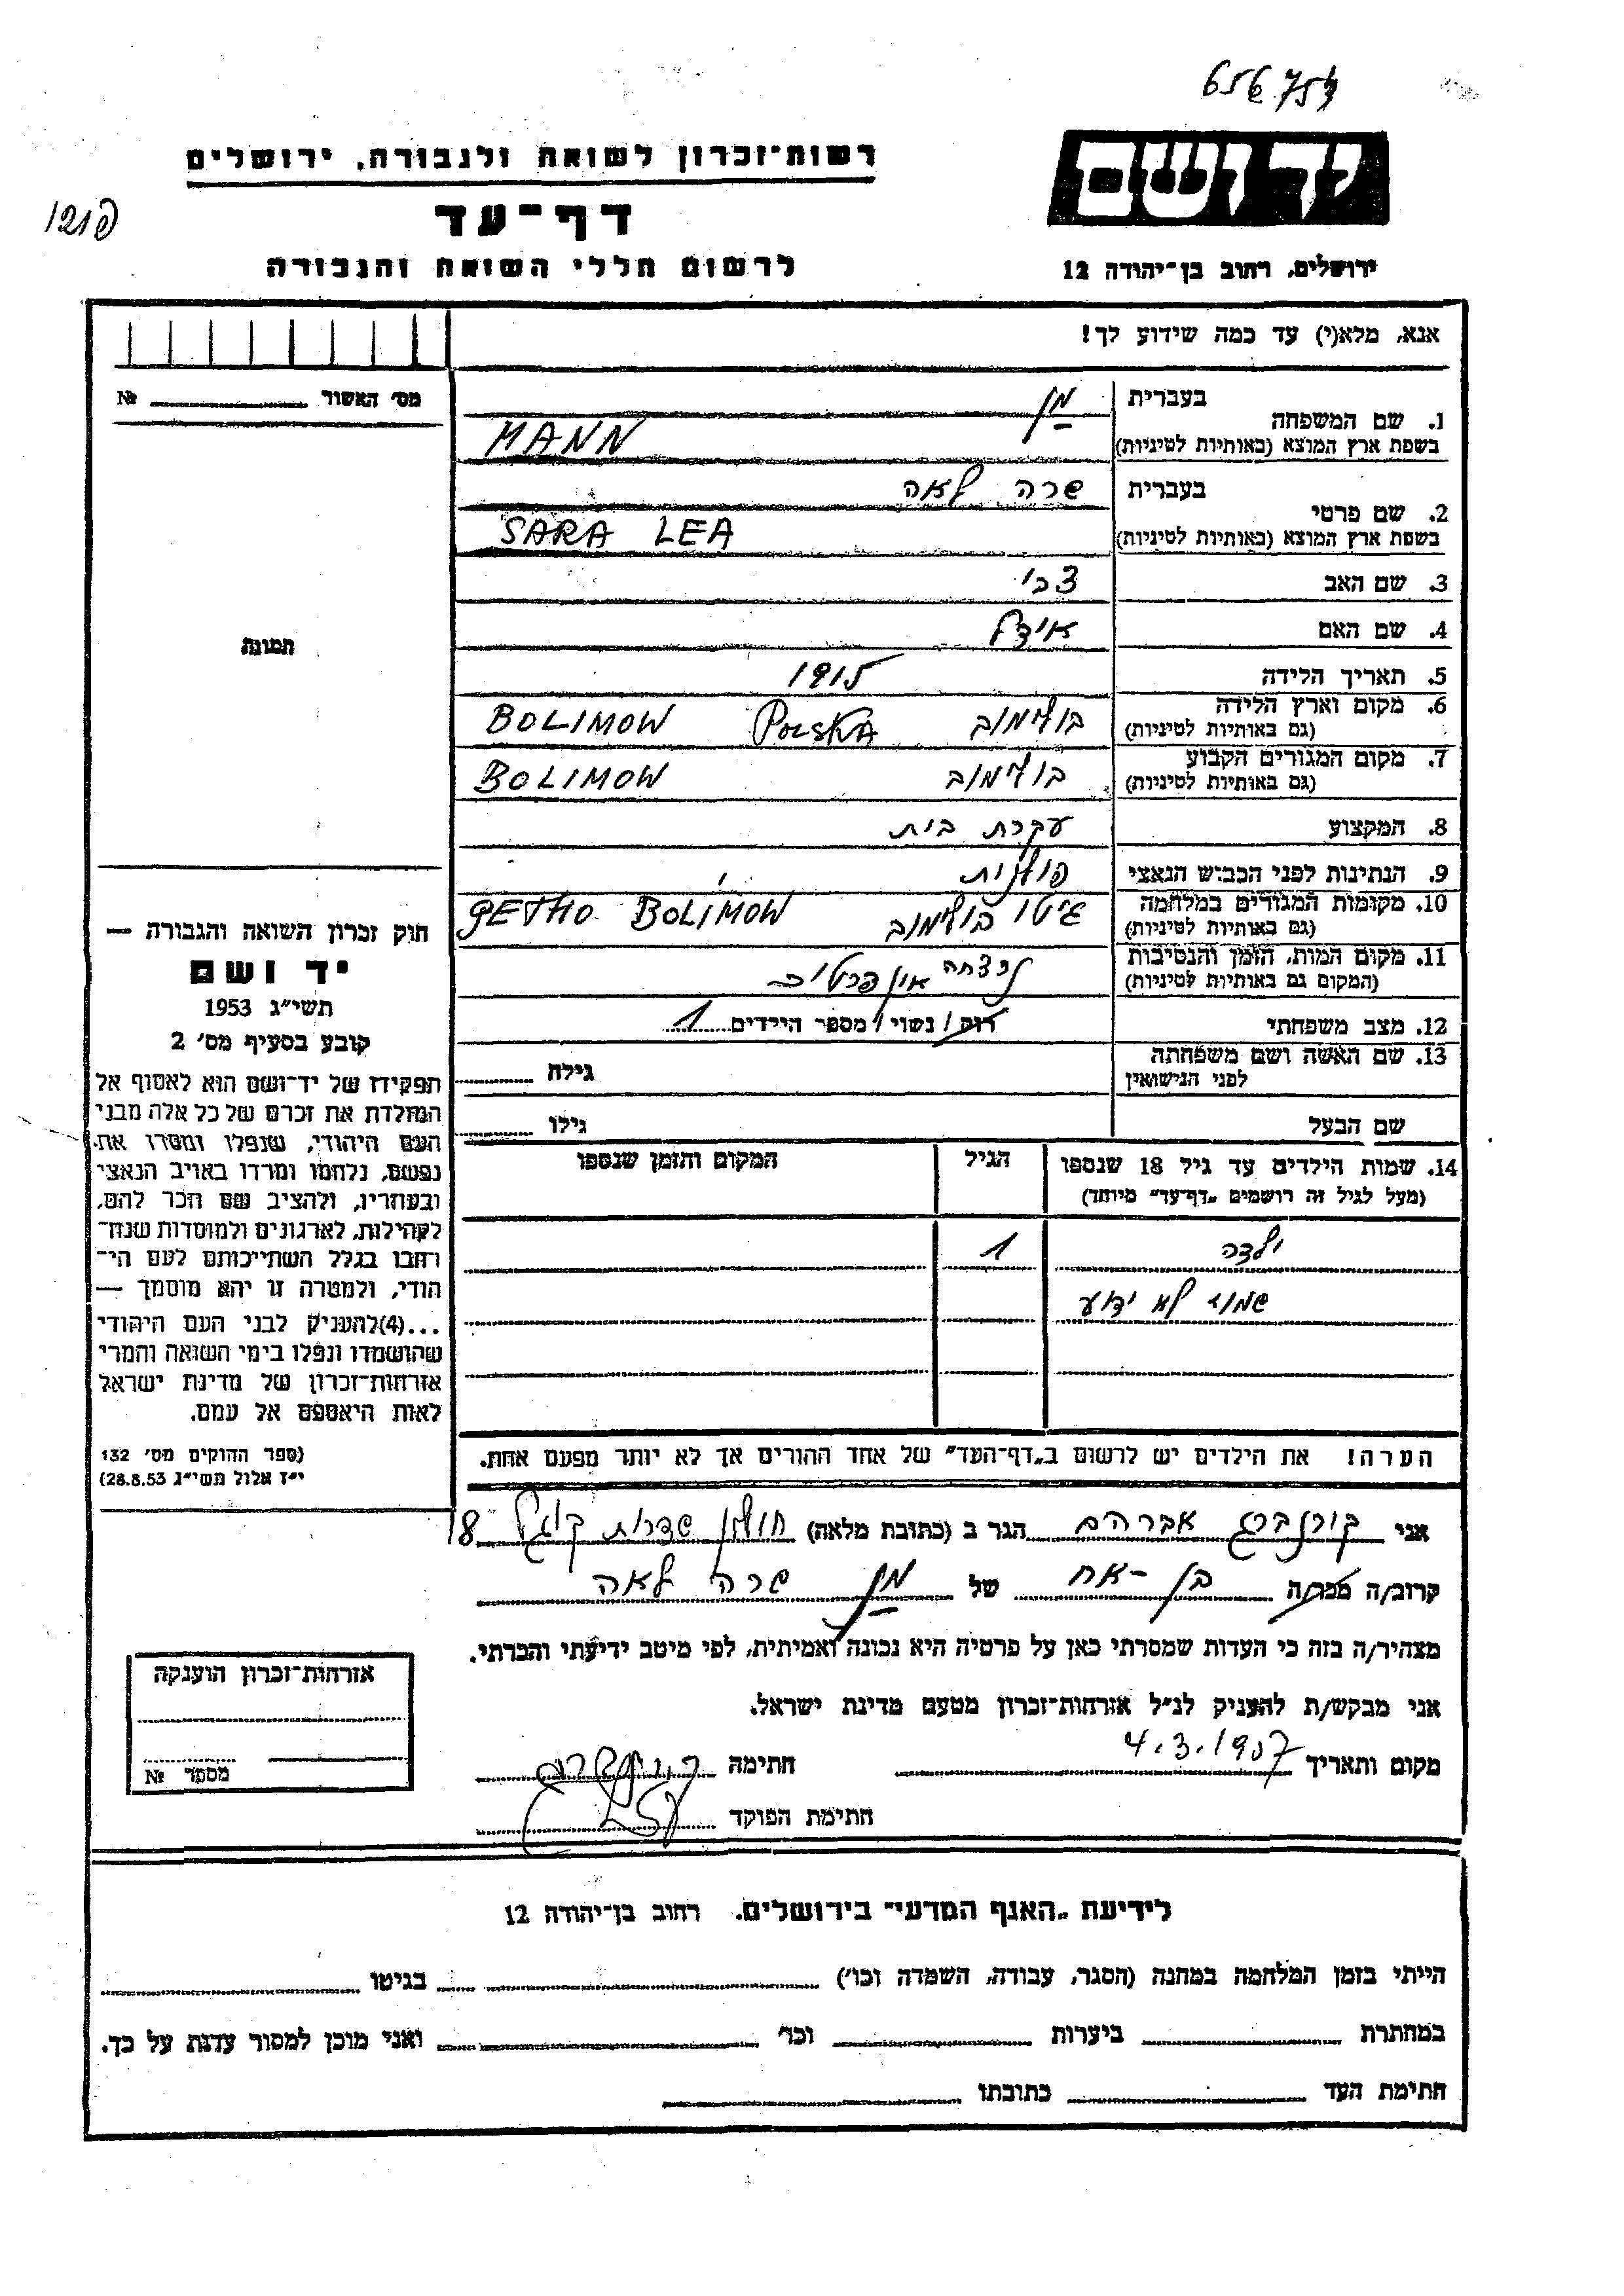 656757
יד ושם
רשות־זכרון לשואה ולגבורה, ירושלים
דף־עד
לרשום חללי השואה והגבורה
ירושלים, רחוב בן־יהודה 12
אנא, מלא(י) עד כמה שידוע לך!
מס׳ האשור № 
1. שם המשפחה בעברית מן
בשפת ארץ המוצא (באותיות לטיניות) MANN
2. שם פרטי בעברית שרה לאה
בשפת ארץ המוצא (באותיות לטיניות) SARA LEA
3. שם האב צבי
4. שם האם אידל
תמונה
5. תאריך הלידה 1915
6. מקום וארץ הלידה (גם באותיות לטיניות) בולימוב POLSKA BOLIMOW
7. מקום המגורים הקבוע (גם באותיות לטיניות) בולימוב BOLIMOW
8. המקצוע עקרת בית
9. הנתינות לפני הכבוש הנאצי פולנית
10. מקומות המגורים במלחמה (גם באותיות לטיניות) גיטו בולימוב GETHO BOLIMOW
11. מקום המות, הזמן והנסיבות (המקום גם באותיות לטיניות) נרצחה אין פרטים
12. מצב משפחתי רוק/נשוי/מספר הילדים 1
13. שם האשה ושם משפחתה לפני הנישואין גילה
שם הבעל גילו
14. שמות הילדים עד גיל 18 שנספו הגיל המקום והזמן שנספו
(מעל לגיל זה רושמים „דף־עד״ מיוחד)
ילדה 1
שמה לא ידוע
הערה! את הילדים יש לרשום ב„דף־העד״ של אחד ההורים אך לא יותר מפעם אחת.
חוק זכרון השואה והגבורה —
יד ושם
תשי״ג 1953
קובע בסעיף מס׳ 2
תפקידו של יד־ושם הוא לאסוף אל
המולדת את זכרם של כל אלה מבני
העם היהודי, שנפלו ומסרו את
נפשם, נלחמו ומרדו באויב הנאצי
ובעוזריו, ולהציב שם וזכר להם,
לקהילות, לארגונים ולמוסדות שנח־
רבו בגלל השתייכותם לעם הי־
הודי, ולמטרה זו יהא מוסמך —
...(4) להעניק לבני העם היהודי
שהושמדו ונפלו בימי השואה והמרי
אזרחות־זכרון של מדינת ישראל
לאות היאספם אל עמם.
(ספר החוקים מס׳ 132
י״ז אלול תשי״ג 28.8.53)
אני קורנברג אברהם הגר ב (כתובת מלאה) חולון שדרות קוגל 18
קרוב/ה מכר/ה בן-אח של מן שרה לאה
מצהיר/ה בזה כי העדות שמסרתי כאן על פרטיה היא נכונה ואמיתית, לפי מיטב ידיעתי והכרתי.
אני מבקש/ת להעניק לנ״ל אזרחות־זכרון מטעם מדינת ישראל.
מקום ותאריך 4.3.1957 חתימה
חתימת הפוקד
אזרחות־זכרון הוענקה
מספר №
לידיעת „האגף המדעי״ בירושלים. רחוב בן־יהודה 12
הייתי בזמן המלחמה במחנה (הסגר, עבודה, השמדה וכו׳) בגיטו
במחתרת ביערות וכו׳ ואני מוכן למסור עדות על כך.
חתימת העד כתובתו